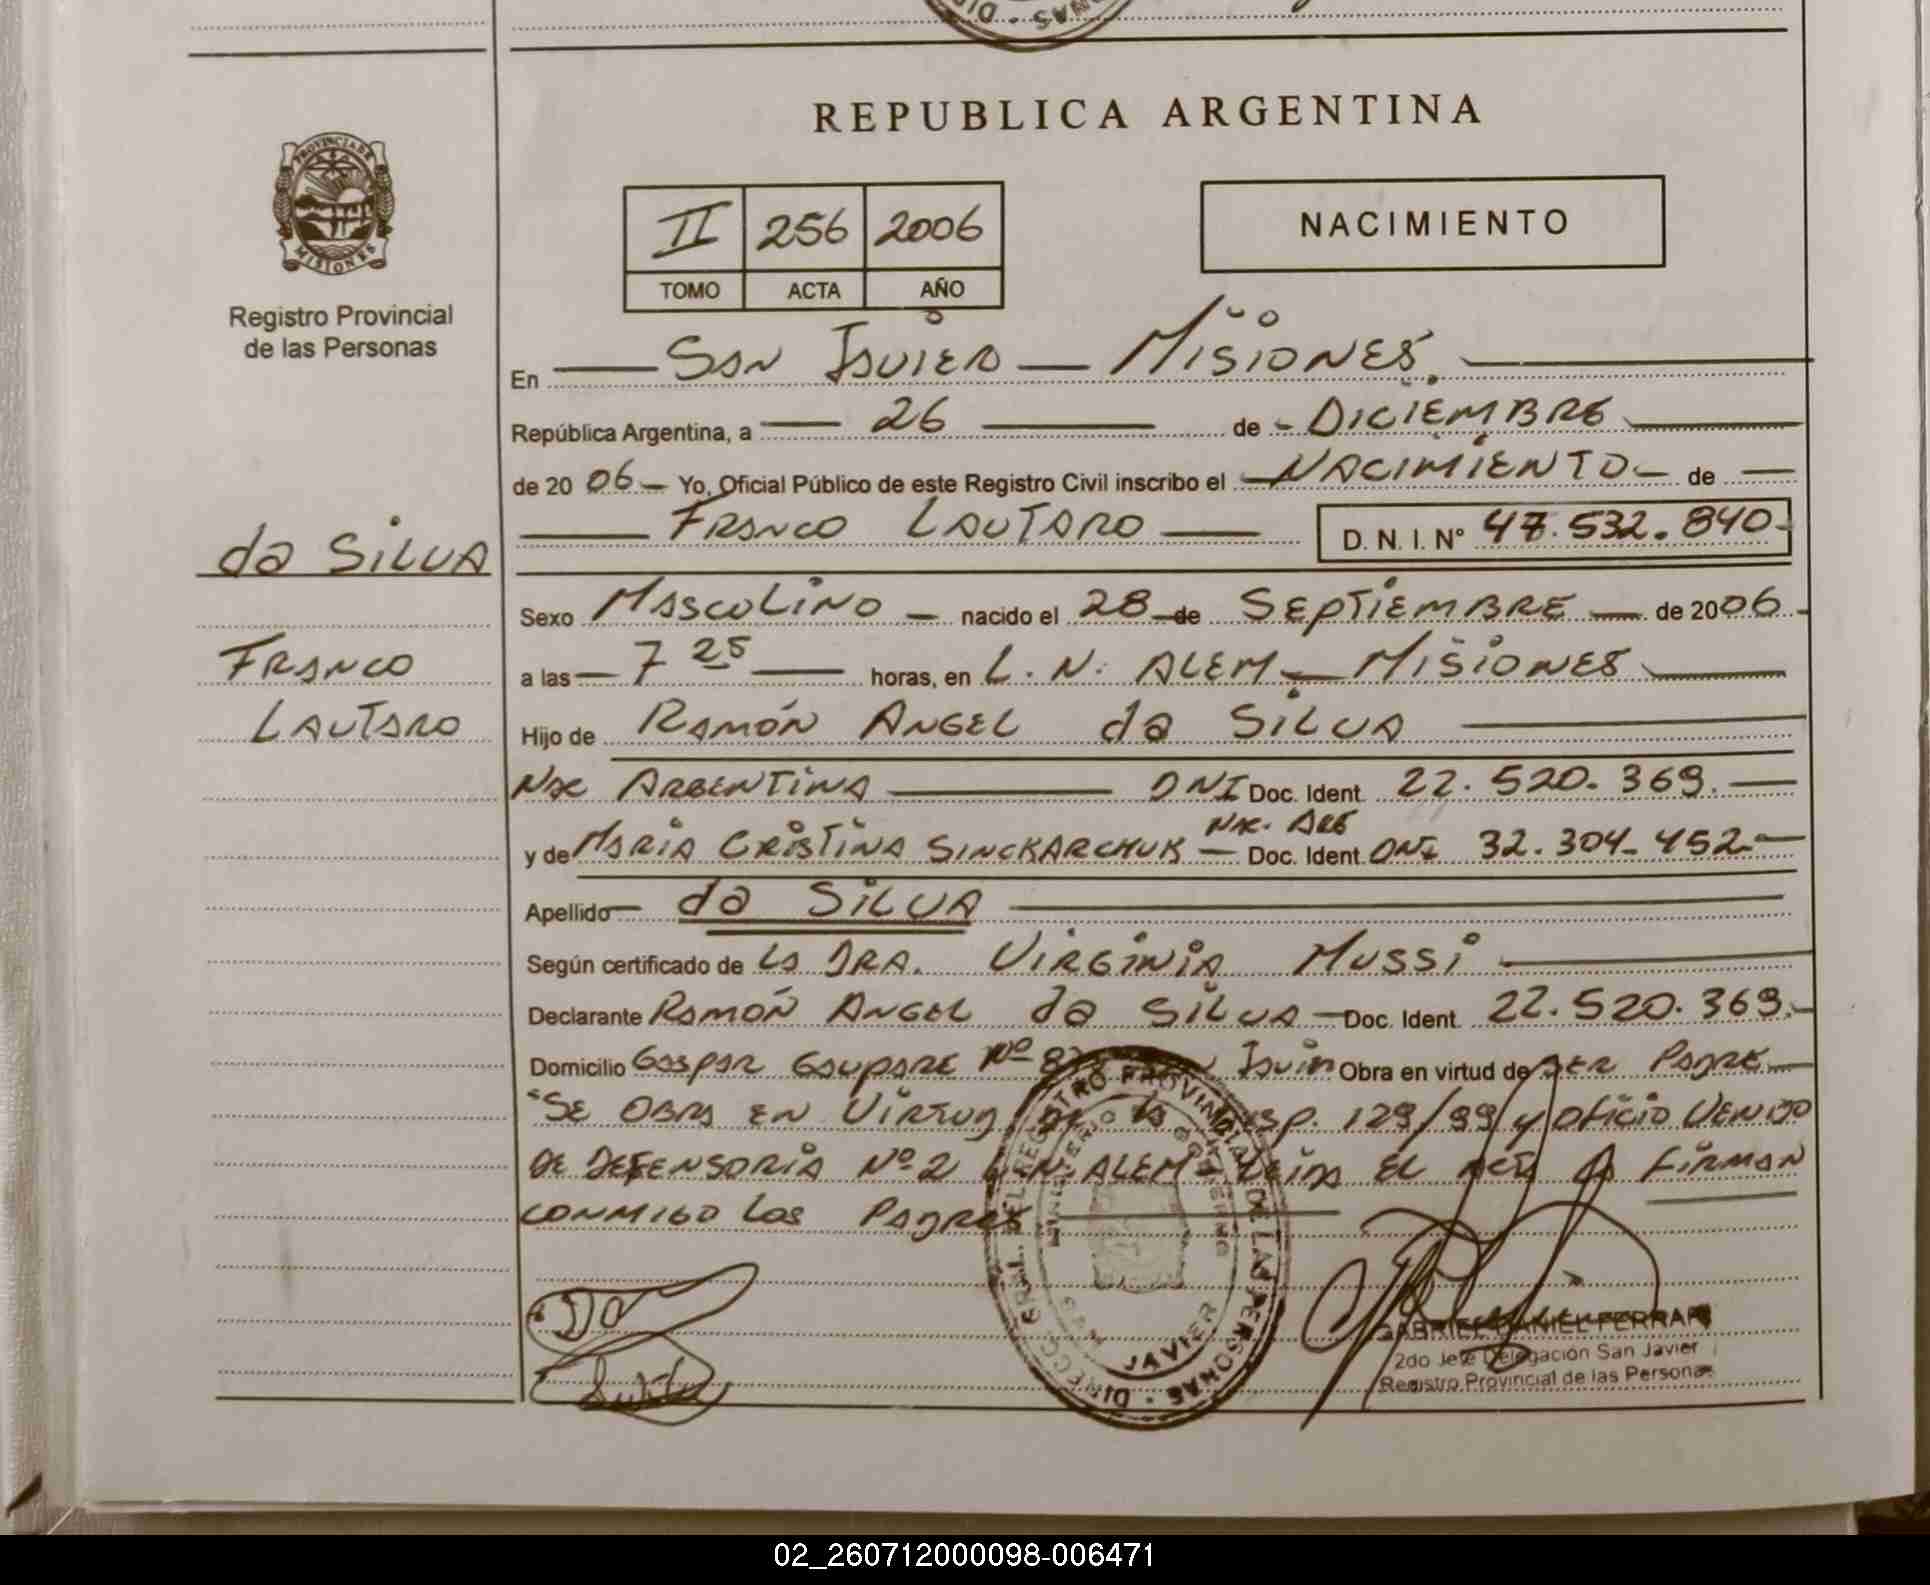 REPUBLICA ARGENTINA
PROVINCIA DE
MISIONES
Registro Provincial
de las Personas
II 256 2006
TOMO ACTA AÑO
NACIMIENTO
En San Javier Misiones
República Argentina, a 26 de Diciembre
de 2006 Yo, Oficial Público de este Registro Civil inscribo el Nacimiento de
Franco Lautaro D. N. I. Nº 47.532.840
da Silva
Franco
Lautaro
Sexo Masculino nacido el 28 de Septiembre de 2006
a las 7 25 horas, en L. N. Alem Misiones
Hijo de Ramón Angel da Silva
Nac Argentina DNI Doc. Ident. 22.520.369.
Nac. Arg
y de Maria Cristina Sinckarchuk Doc. Ident. DNI 32.304.452
Apellido da Silva
Según certificado de la Dra. Virginia Mussi
Declarante Ramón Angel da Silva Doc. Ident. 22.520.369.
Domicilio Gaspar Nº Obra en virtud de ser Padre
"Se obra en virtud de la Disp. 129/99 y oficio venido
de Defensoria Nº 2 L.N. Alem Leida el acta firman
conmigo los Padres
DIRECC. GRAL. DEL REGISTRO PROVINCIAL DE LAS PERSONAS
MINISTERIO DE GOBIERNO
JAVIER
GABRIEL DANIEL FERRARI
2do Jefe Delegación San Javier
Registro Provincial de las Personas
02_260712000098-006471